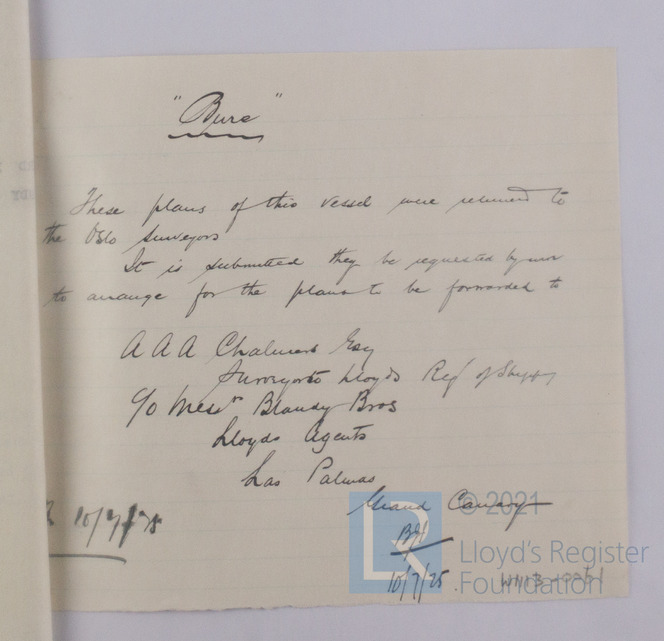 "Bure"
These plans of this vessel were returned to
the Oslo Surveyors
It is submitted they be requested by
to arrange for the plans to be forwarded to
A A A Chalmers Esq
Surveyor to Lloyds Regr of Shippg
c/o Messrs Blandy Bros
Lloyds Agents
Las Palmas
Grand Canary
10/7/25
10/7/25
© 2021
Lloyd's Register
Foundation
W1113-0051